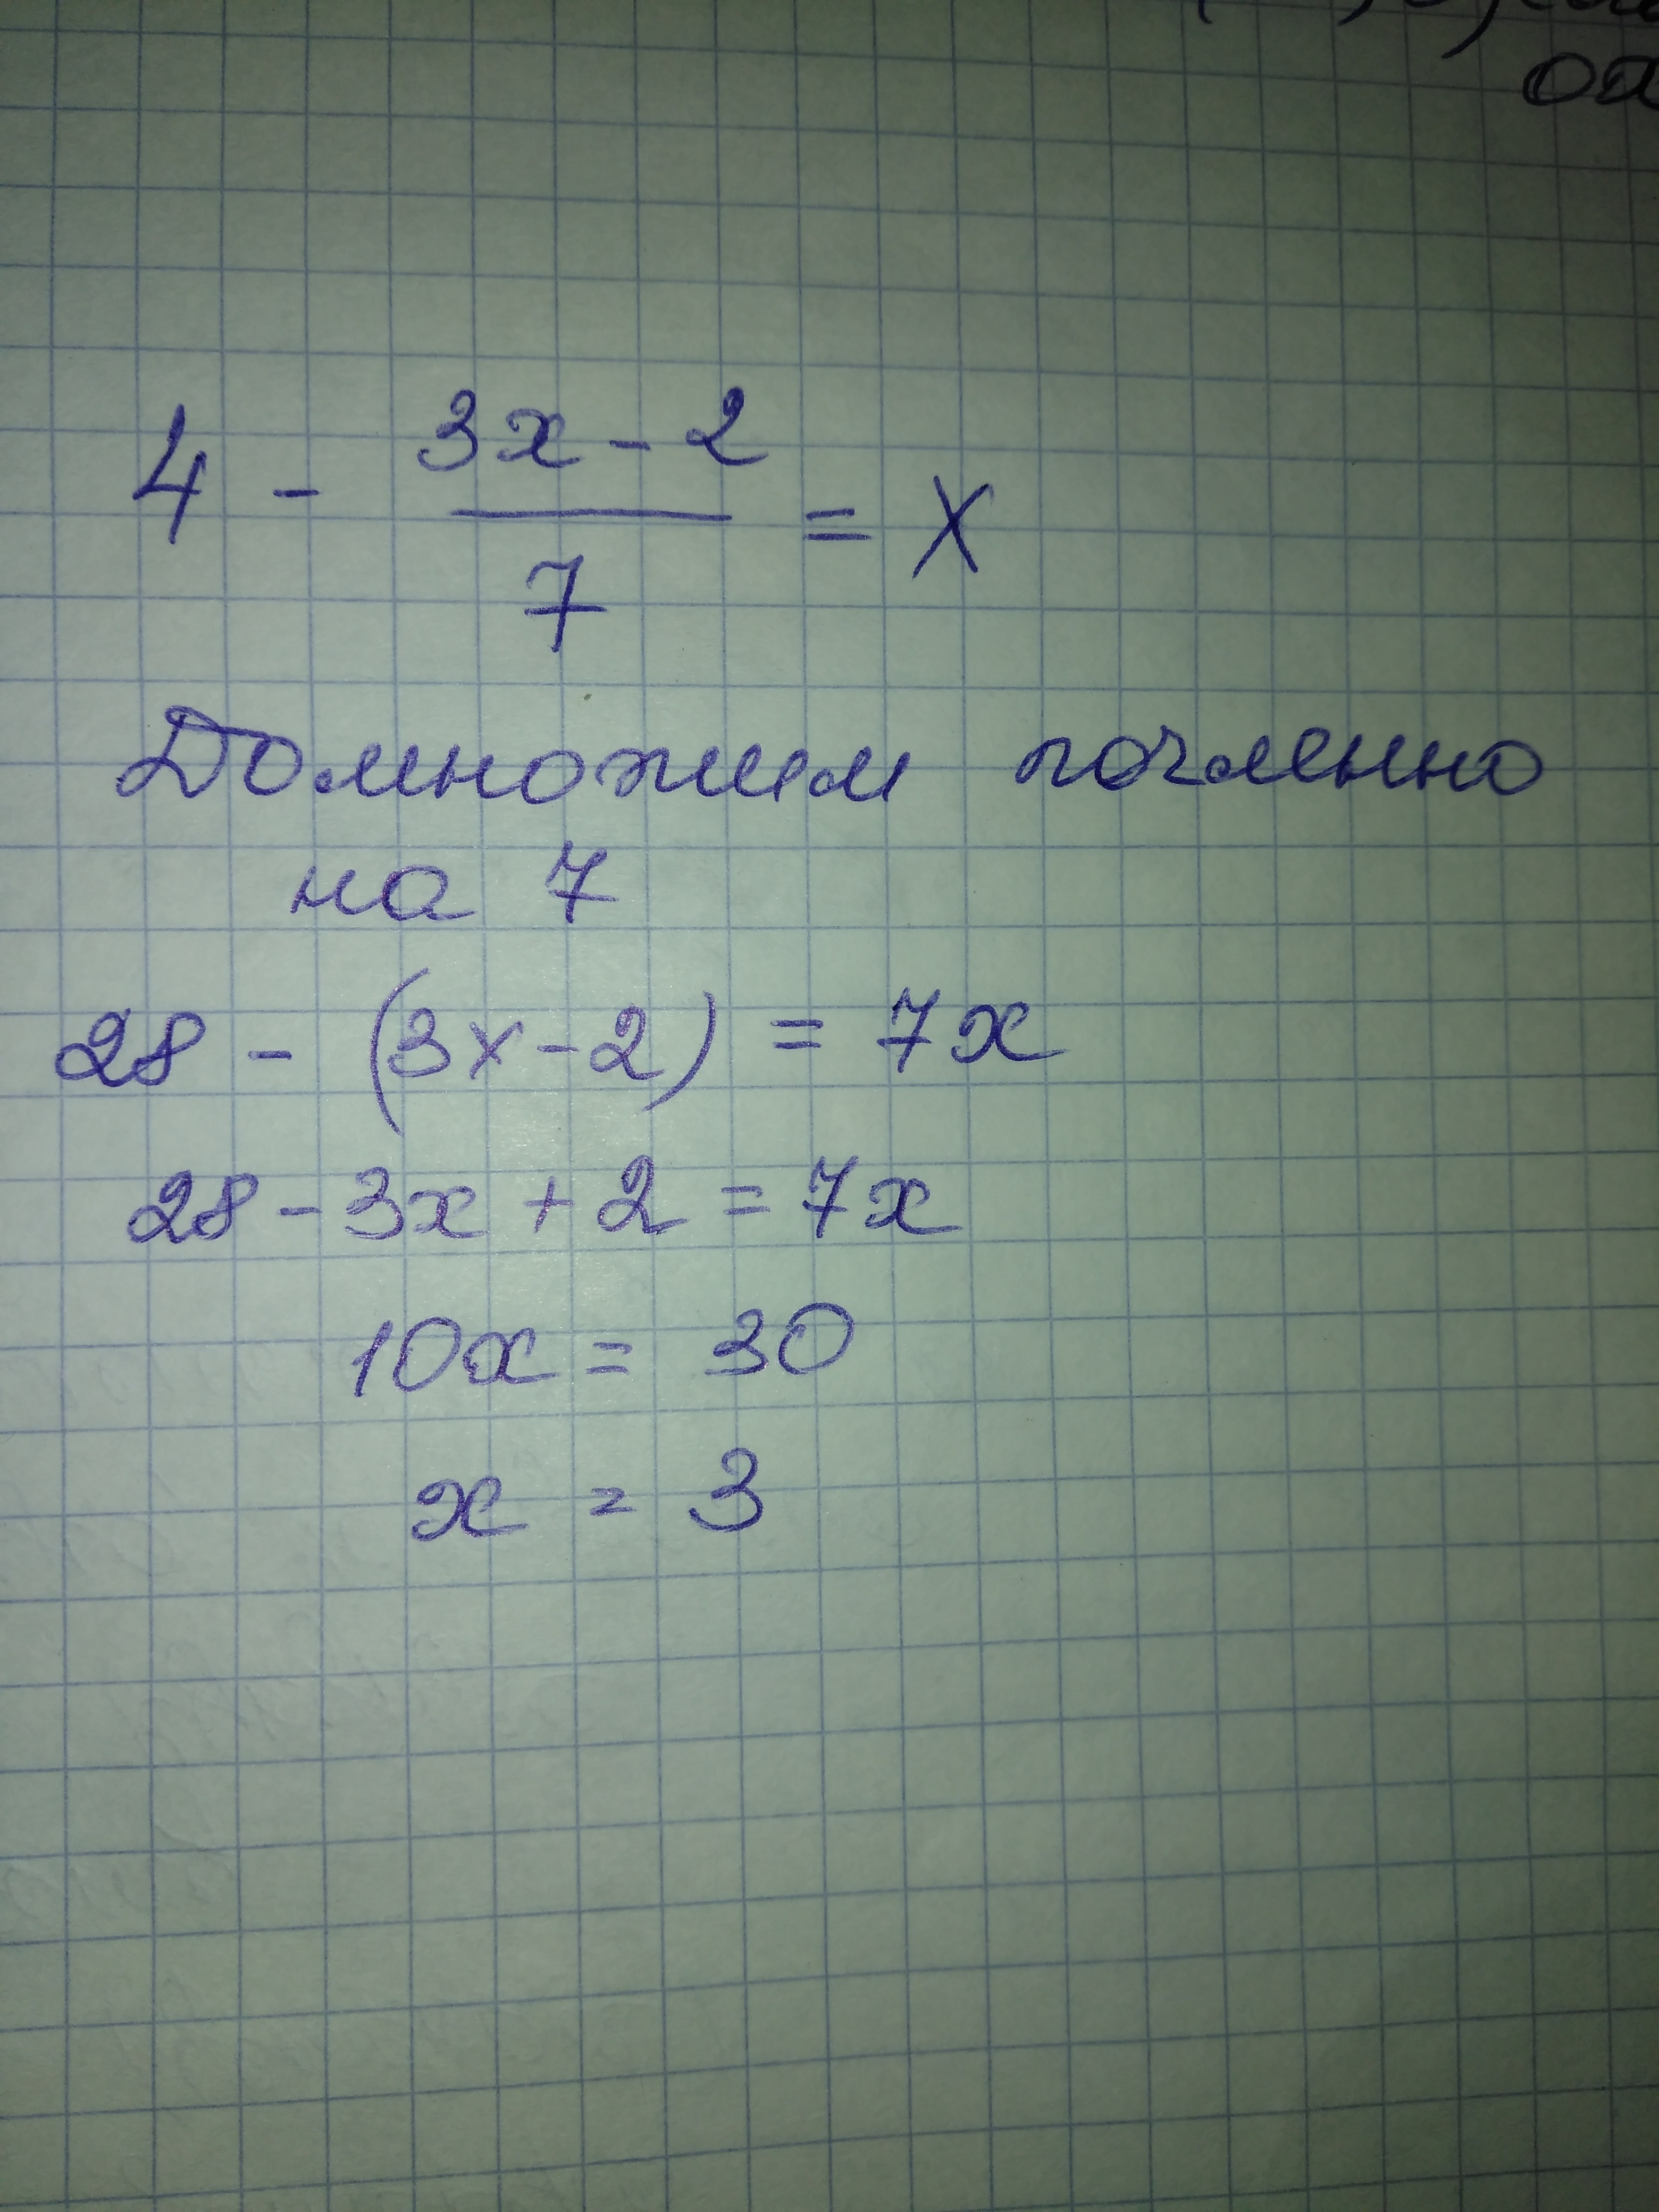 4 - \frac{3x-2}{7} = x
Домножим почленно
на 7
28 - (3x-2) = 7x
28 - 3x + 2 = 7x
10x = 30
x = 3